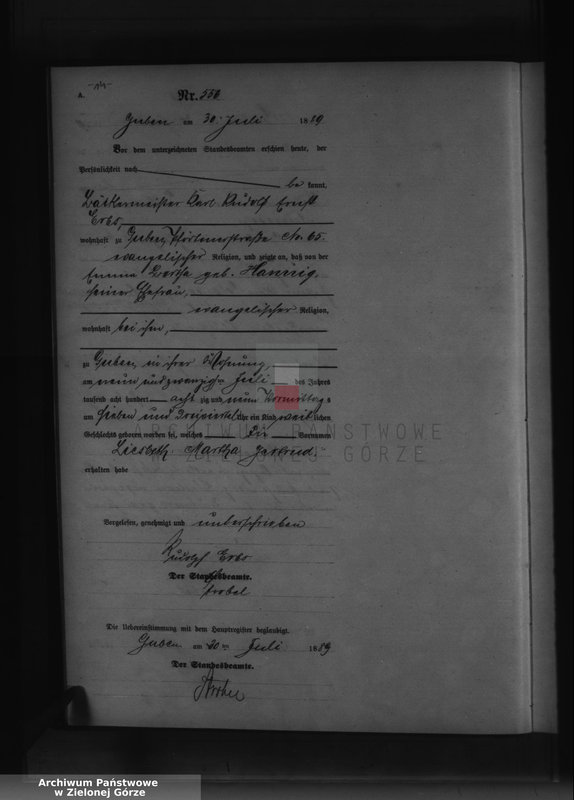 A.
Nr. 556
Guben am 30. Juli 1889
Vor dem unterzeichneten Standesbeamten erschien heute, der
Persönlichkeit nach
be kannt,
Bäckermeister Karl Rudolf Ernst
Erbs,
wohnhaft zu Guben, Pförtenerstraße No. 65.
evangelischer Religion, und zeigte an, daß von der
Emma Bertha geb. Hannig,
seiner Ehefrau,
evangelischer Religion,
wohnhaft bei ihm,
zu Guben, in ihrer Wohnung,
am neun und zwanzigten Juli des Jahres
tausend acht hundert acht zig und neun Vormittags
um sieben und Dreiviertel Uhr ein Kind weiblichen
Geschlechts geboren worden sei, welches die Vornamen
Liesbeth Martha Gertrud
erhalten habe
Vorgelesen, genehmigt und unterschrieben
Rudolf Erbs
Der Standesbeamte.
Die Uebereinstimmung mit dem Hauptregister beglaubigt.
Guben am 30 ten Juli 1889
Der Standesbeamte.
ARCHIWUM PAŃSTWOWE
ZIELONEJ GÓRZE
Archiwum Państwowe
w Zielonej Górze